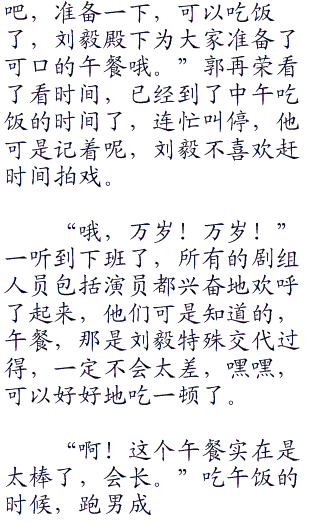 吧，准备一下，可以吃饭
了，刘毅殿下为大家准备了
可口的午餐哦。”郭再荣看
了看时间，已经到了中午吃
饭的时间了，连忙叫停，他
可是记着呢，刘毅不喜欢赶
时间拍戏。
“哦，万岁！万岁！”
一听到下班了，所有的剧组
人员包括演员都兴奋地欢呼
了起来，他们可是知道的，
午餐，那是刘毅特殊交代过
得，一定不会太差，嘿嘿，
可以好好地吃一顿了。
“啊！这个午餐实在是
太棒了，会长。”吃午饭的
时候，跑男成